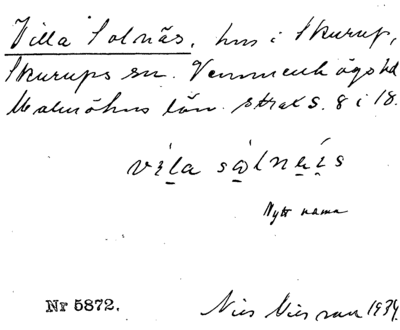 Villa Solnäs, hus i Skurup,
Skurups sn. Vemmenhögs hd
Malmöhus län. strax S. 8 i 18.
vila sålnäis
Nytt namn
Nr 5872.
Nils Nilsson 1934.